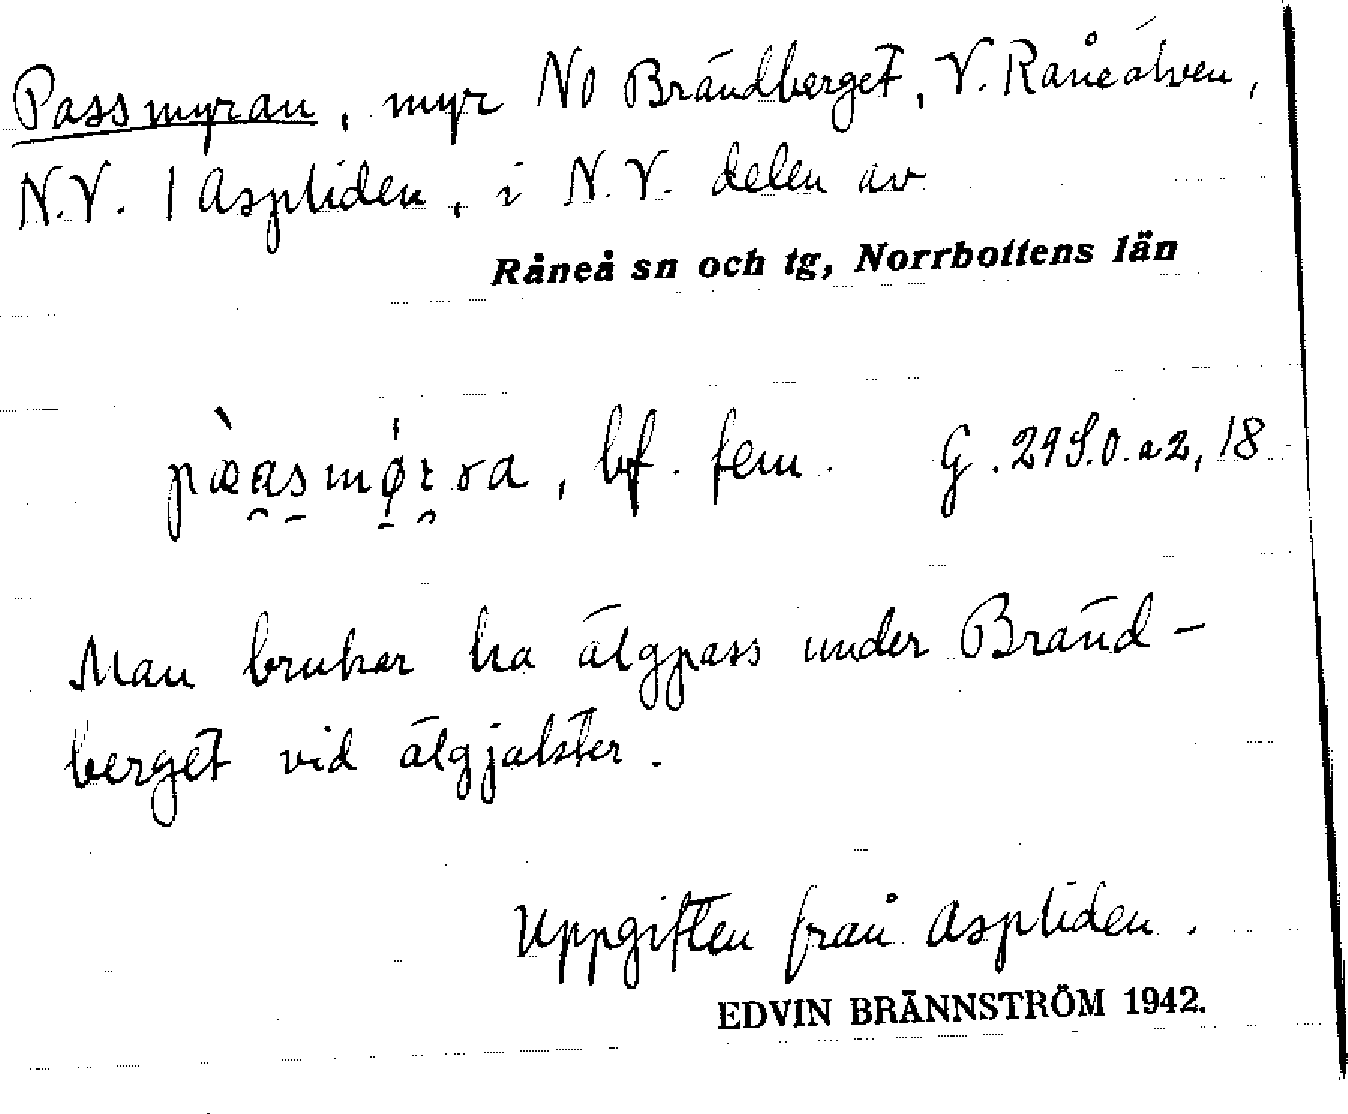 Passmyran, myr NO Brändberget, V. Råneälven,
N.V. / Aspliden, i N.V. delen av
Råneå sn och tg, Norrbottens län
bf. fem. G. 29S.0.a2, 18
Man brukar ha älgpass under Bränd-
berget vid älgjakter.
Uppgiften från Aspliden.
EDVIN BRÄNNSTRÖM 1942.